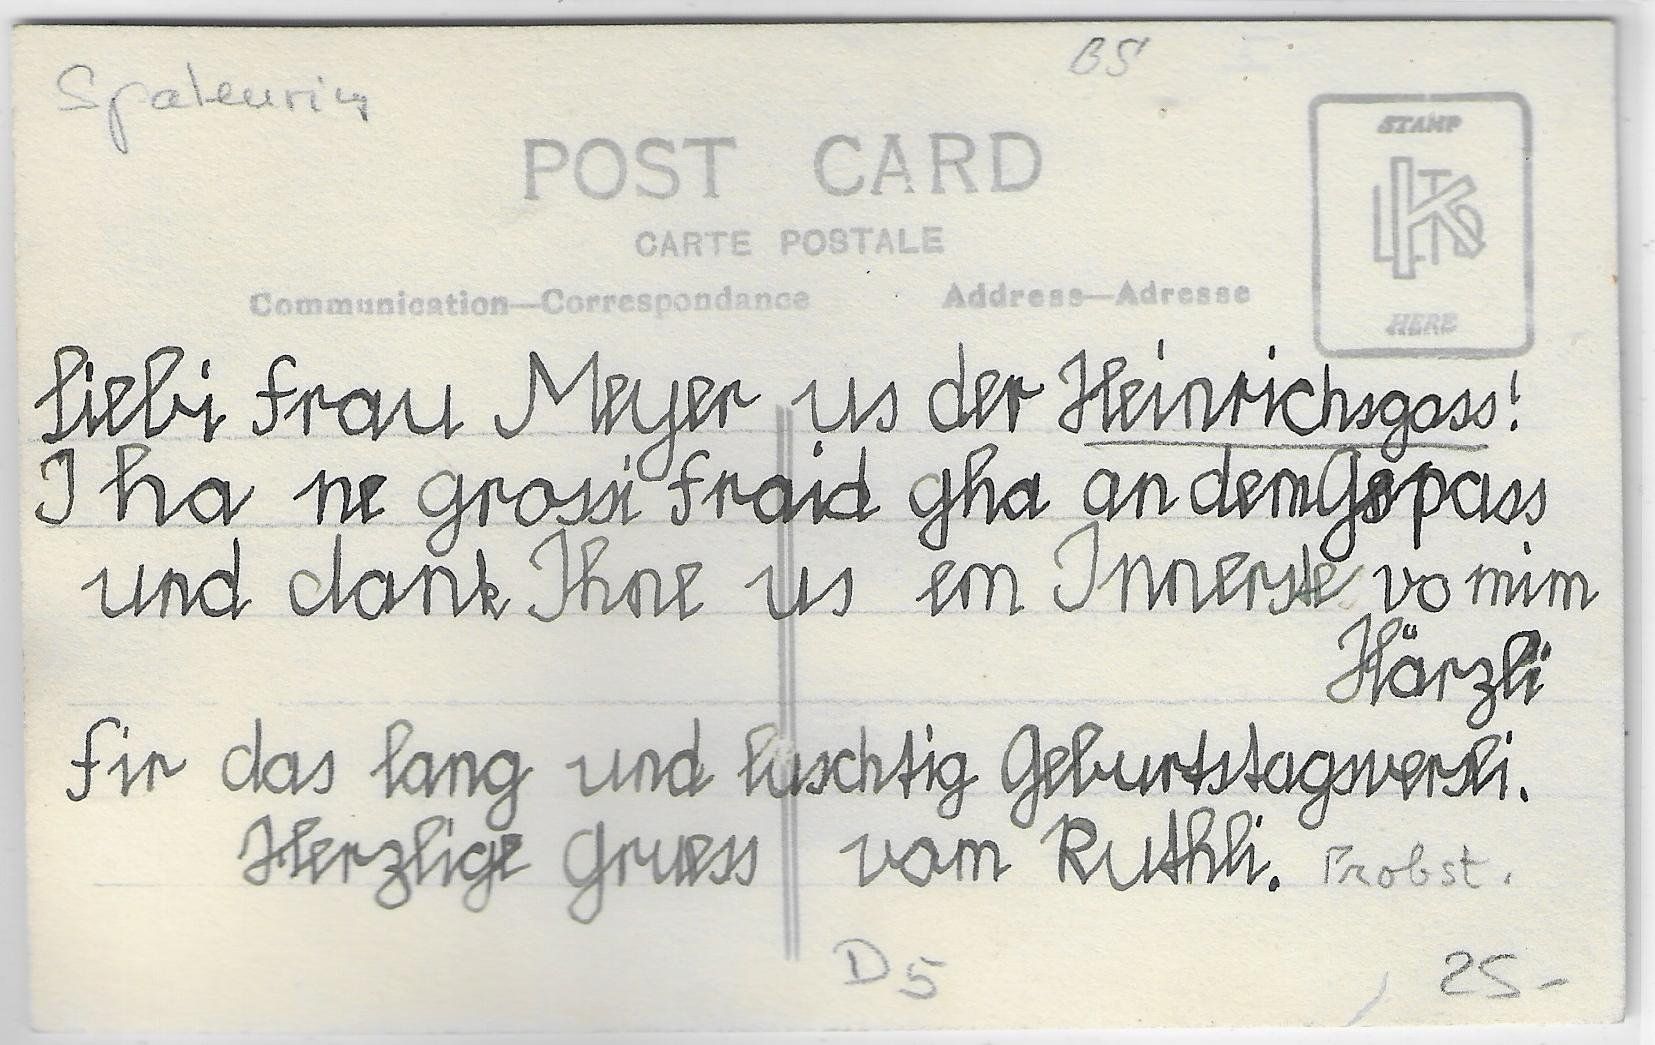 BS
Spalenring
POST CARD
CARTE POSTALE
Communication—Correspondance Address—Adresse
STAMP
HERE
Liebi Frau Meyer us der Heinrichsgass!
I ha ne grossi Fraid gha an dem Gspass
und dank Ihne us em Innerste vo mim
Härzli
fir das lang und luschtig Geburtstagsversli.
Herzlige Gruess vom Ruthli. Probst.
D5
25-